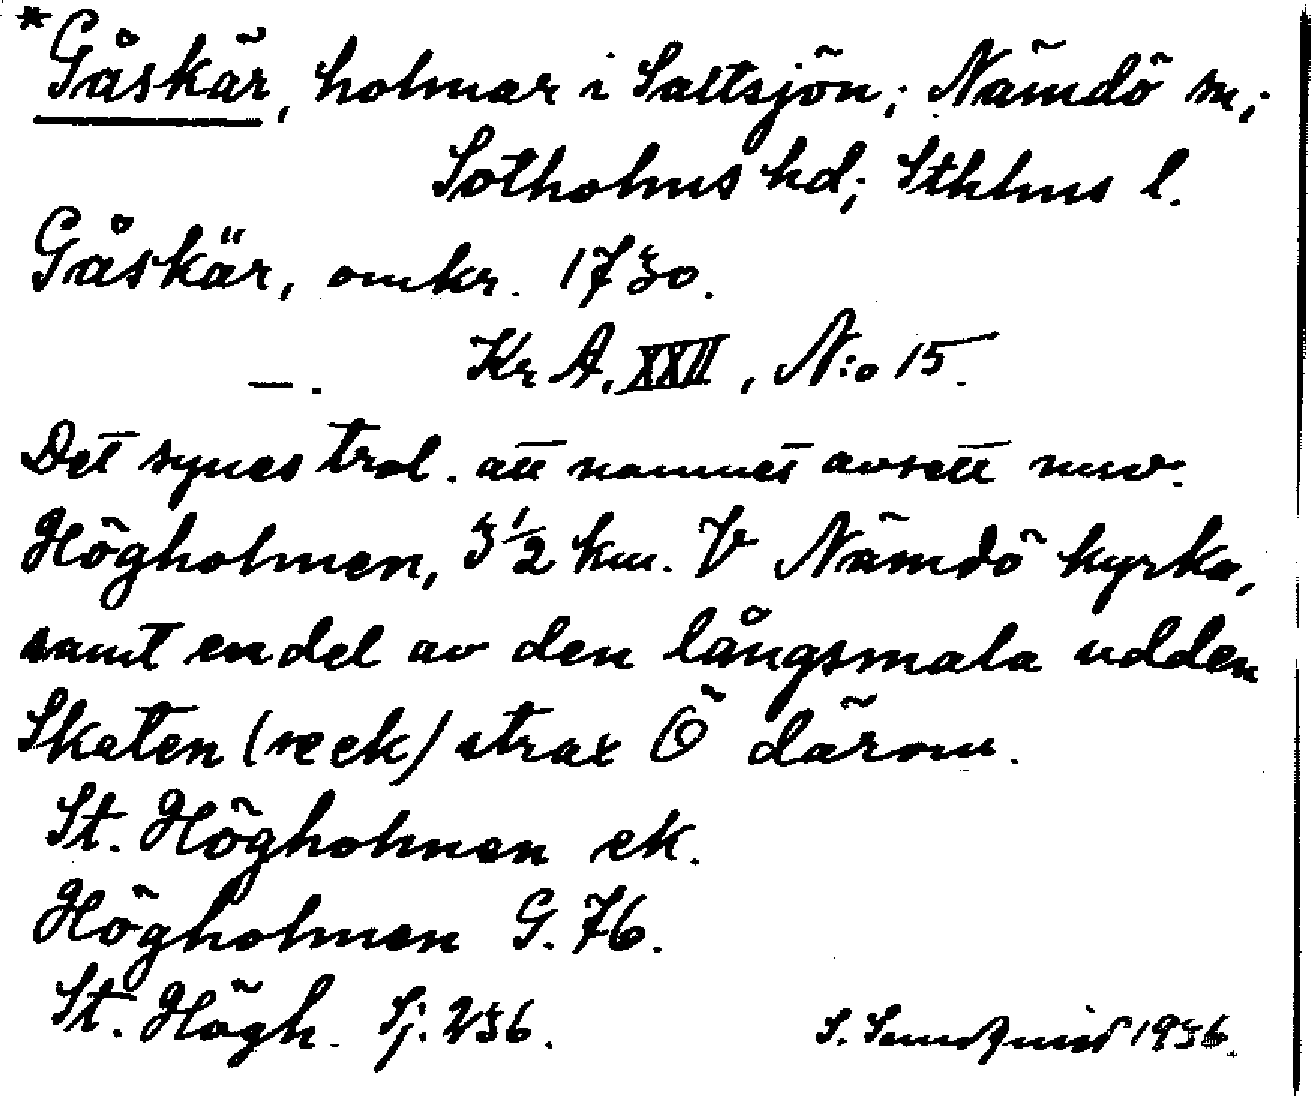 *Gåskär, holmar i Saltsjön; Nämdö sn;
Sotholms hd; Sthlms l.
Gåskär, omkr. 1730.
—. Kr A. XXII, N:o 15.
Det synes trol. att namnet avsett nuv.
Högholmen, 3 1/2 km. V Nämdö kyrka,
samt en del av den långsmala udden
Skaten (reck) strax Ö därom.
St. Högholmen ek.
Högholmen G. 76.
St. Högh. Sj. 236.
S. 1936.